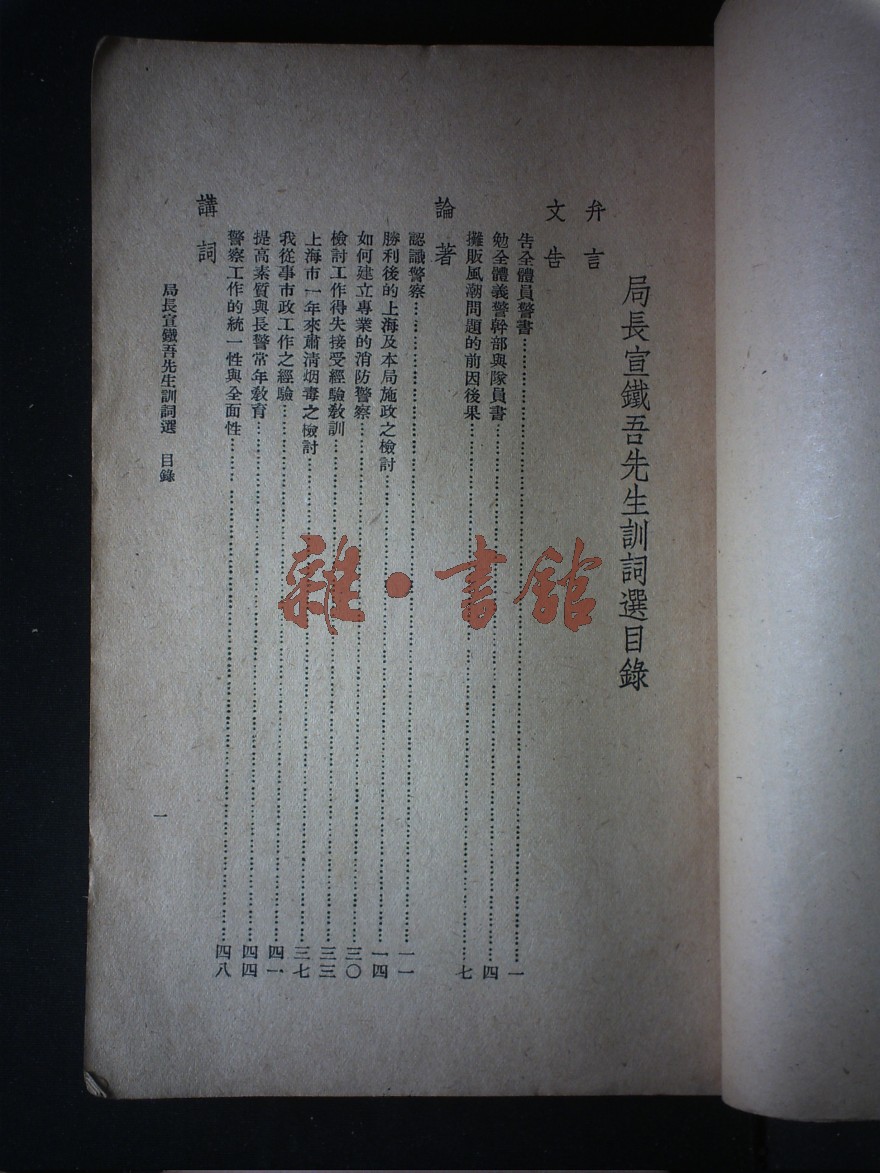 局長宣鐵吾先生訓詞選目錄
弁言
文告
告全體員警書…………一
勉全體義警幹部與隊員書…………四
攤販風潮問題的前因後果…………七
論著
認識警察…………一一
勝利後的上海及本局施政之檢討…………一四
如何建立專業的消防警察…………三〇
檢討工作得失接受經驗教訓…………三三
上海市一年來肅清烟毒之檢討…………三七
我從事市政工作之經驗…………四一
提高素質與長警常年教育…………四四
警察工作的統一性與全面性…………四八
講詞
局長宣鐵吾先生訓詞選 目錄
一
雜·書館